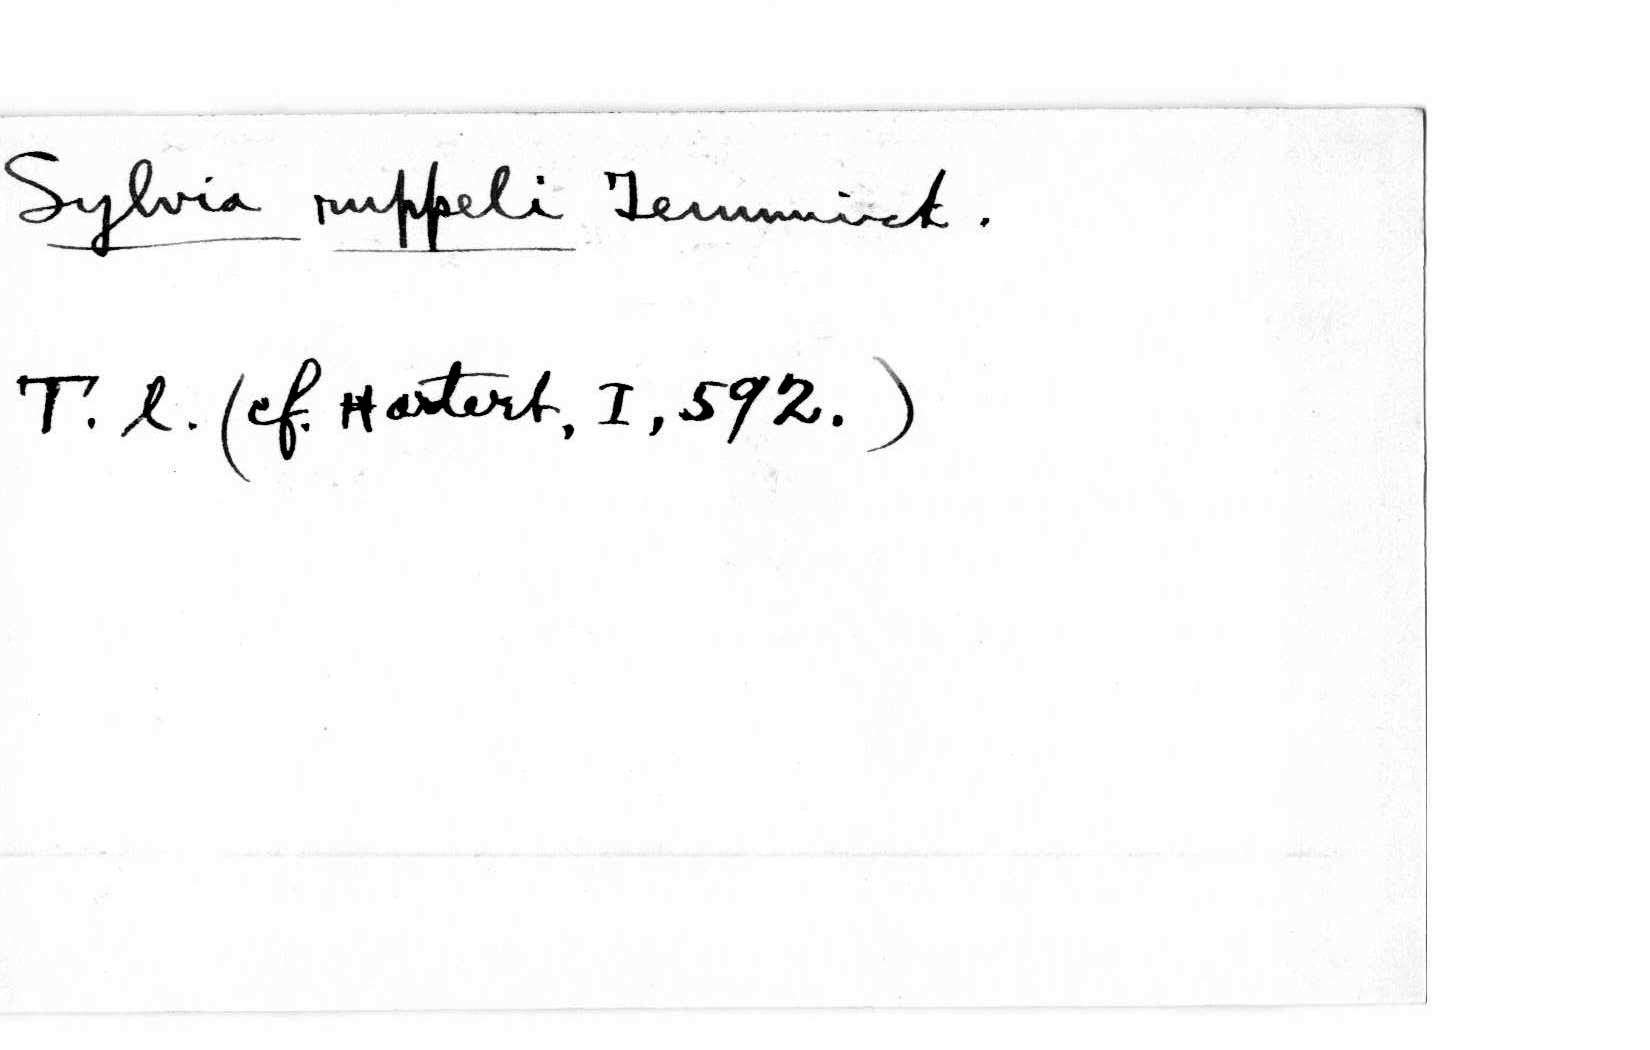 Sylvia ruppeli Temminck.
T. l. (cf. Hartert, I, 592.)